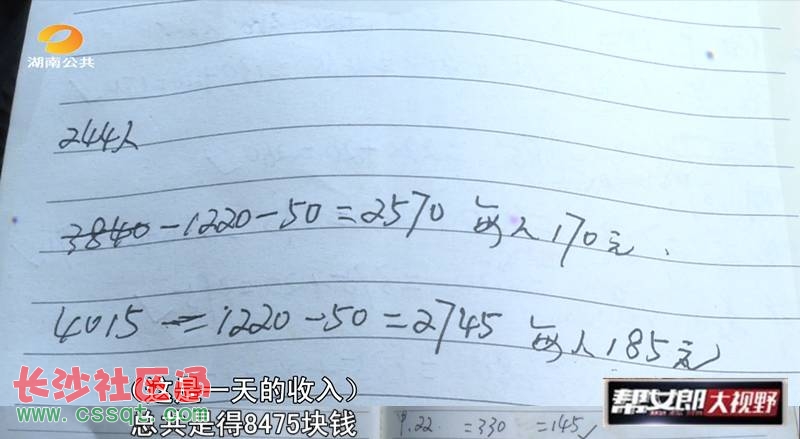 湖南公共
244人
3840-1220-50=2570 每人170元.
4015-1220-50=2745 每人185元
(这是一天的收入)
总共是得8475块钱
长沙社区通
www.cssqt.com
9.22 =330 =145
帮女郎大视野